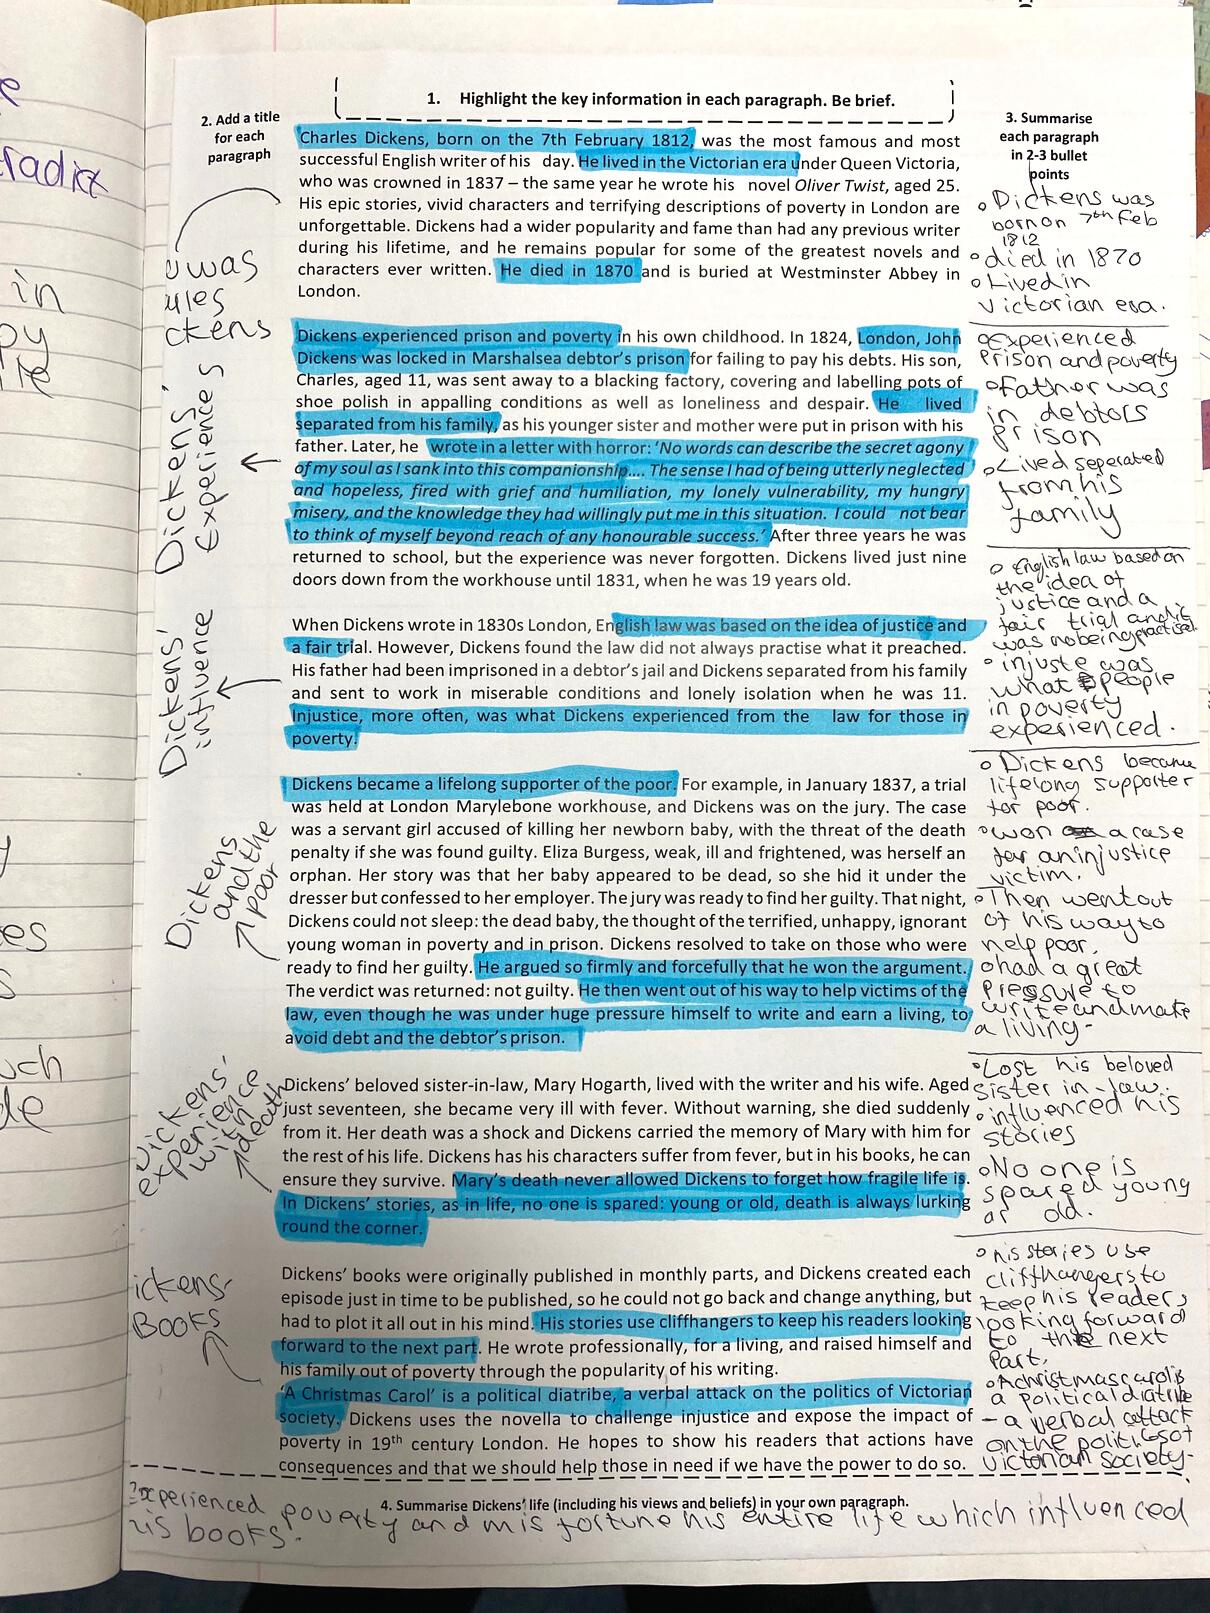 radict
in
py
es
uch
de
1. Highlight the key information in each paragraph. Be brief.
2. Add a title
for each
paragraph
3. Summarise
each paragraph
in 2-3 bullet
points
Charles Dickens, born on the 7th February 1812, was the most famous and most
successful English writer of his day. He lived in the Victorian era under Queen Victoria,
who was crowned in 1837 – the same year he wrote his novel Oliver Twist, aged 25.
His epic stories, vivid characters and terrifying descriptions of poverty in London are
unforgettable. Dickens had a wider popularity and fame than had any previous writer
during his lifetime, and he remains popular for some of the greatest novels and
characters ever written. He died in 1870 and is buried at Westminster Abbey in
London.
was
ckens
Dickens was
born on 7th Feb
1812
died in 1870
Lived in
victorian era.
Dickens experienced prison and poverty in his own childhood. In 1824, London, John
Dickens was locked in Marshalsea debtor's prison for failing to pay his debts. His son,
Charles, aged 11, was sent away to a blacking factory, covering and labelling pots of
shoe polish in appalling conditions as well as loneliness and despair. He lived
separated from his family, as his younger sister and mother were put in prison with his
father. Later, he wrote in a letter with horror: 'No words can describe the secret agony
of my soul as I sank into this companionship.... The sense I had of being utterly neglected
and hopeless, fired with grief and humiliation, my lonely vulnerability, my hungry
misery, and the knowledge they had willingly put me in this situation. I could not bear
to think of myself beyond reach of any honourable success.' After three years he was
returned to school, but the experience was never forgotten. Dickens lived just nine
doors down from the workhouse until 1831, when he was 19 years old.
Dickens'
Experiences
experienced
Prison and poverty
Father was
in debtors
prison
Lived seperated
from his
family
When Dickens wrote in 1830s London, English law was based on the idea of justice and
a fair trial. However, Dickens found the law did not always practise what it preached.
His father had been imprisoned in a debtor's jail and Dickens separated from his family
and sent to work in miserable conditions and lonely isolation when he was 11.
Injustice, more often, was what Dickens experienced from the law for those in
poverty.
Dickens'
influence
English law based on
the idea of
justice and a
fair trial and it
was no being practised.
injuste was
what people
in poverty
experienced.
Dickens became a lifelong supporter of the poor. For example, in January 1837, a trial
was held at London Marylebone workhouse, and Dickens was on the jury. The case
was a servant girl accused of killing her newborn baby, with the threat of the death
penalty if she was found guilty. Eliza Burgess, weak, ill and frightened, was herself an
orphan. Her story was that her baby appeared to be dead, so she hid it under the
dresser but confessed to her employer. The jury was ready to find her guilty. That night,
Dickens could not sleep: the dead baby, the thought of the terrified, unhappy, ignorant
young woman in poverty and in prison. Dickens resolved to take on those who were
ready to find her guilty. He argued so firmly and forcefully that he won the argument.
The verdict was returned: not guilty. He then went out of his way to help victims of the
law, even though he was under huge pressure himself to write and earn a living, to
avoid debt and the debtor's prison.
Dickens
and the
poor
Dickens became
lifelong supporter
for poor.
won a case
for an injustice
victim.
Then went out
of his way to
help poor.
had a great
pressure to
write and make
a living-
Dickens' beloved sister-in-law, Mary Hogarth, lived with the writer and his wife. Aged
just seventeen, she became very ill with fever. Without warning, she died suddenly
from it. Her death was a shock and Dickens carried the memory of Mary with him for
the rest of his life. Dickens has his characters suffer from fever, but in his books, he can
ensure they survive. Mary's death never allowed Dickens to forget how fragile life is.
In Dickens' stories, as in life, no one is spared: young or old, death is always lurking
round the corner.
Dickens'
experience
with
death
Lost his beloved
sister in-law.
influenced his
stories
No one is
spared young
or old.
Dickens' books were originally published in monthly parts, and Dickens created each
episode just in time to be published, so he could not go back and change anything, but
had to plot it all out in his mind. His stories use cliffhangers to keep his readers looking
forward to the next part. He wrote professionally, for a living, and raised himself and
his family out of poverty through the popularity of his writing.
'A Christmas Carol' is a political diatribe, a verbal attack on the politics of Victorian
society. Dickens uses the novella to challenge injustice and expose the impact of
poverty in 19th century London. He hopes to show his readers that actions have
consequences and that we should help those in need if we have the power to do so.
ickens'
Books
his stories use
cliffhangers to
keep his readers
looking forward
to the next
part.
A christmas carol is
a political diatribe
- a verbal attack
on the politics of
victorian society-
4. Summarise Dickens' life (including his views and beliefs) in your own paragraph.
Experienced poverty and misfortune his entire life which influenced
his books.